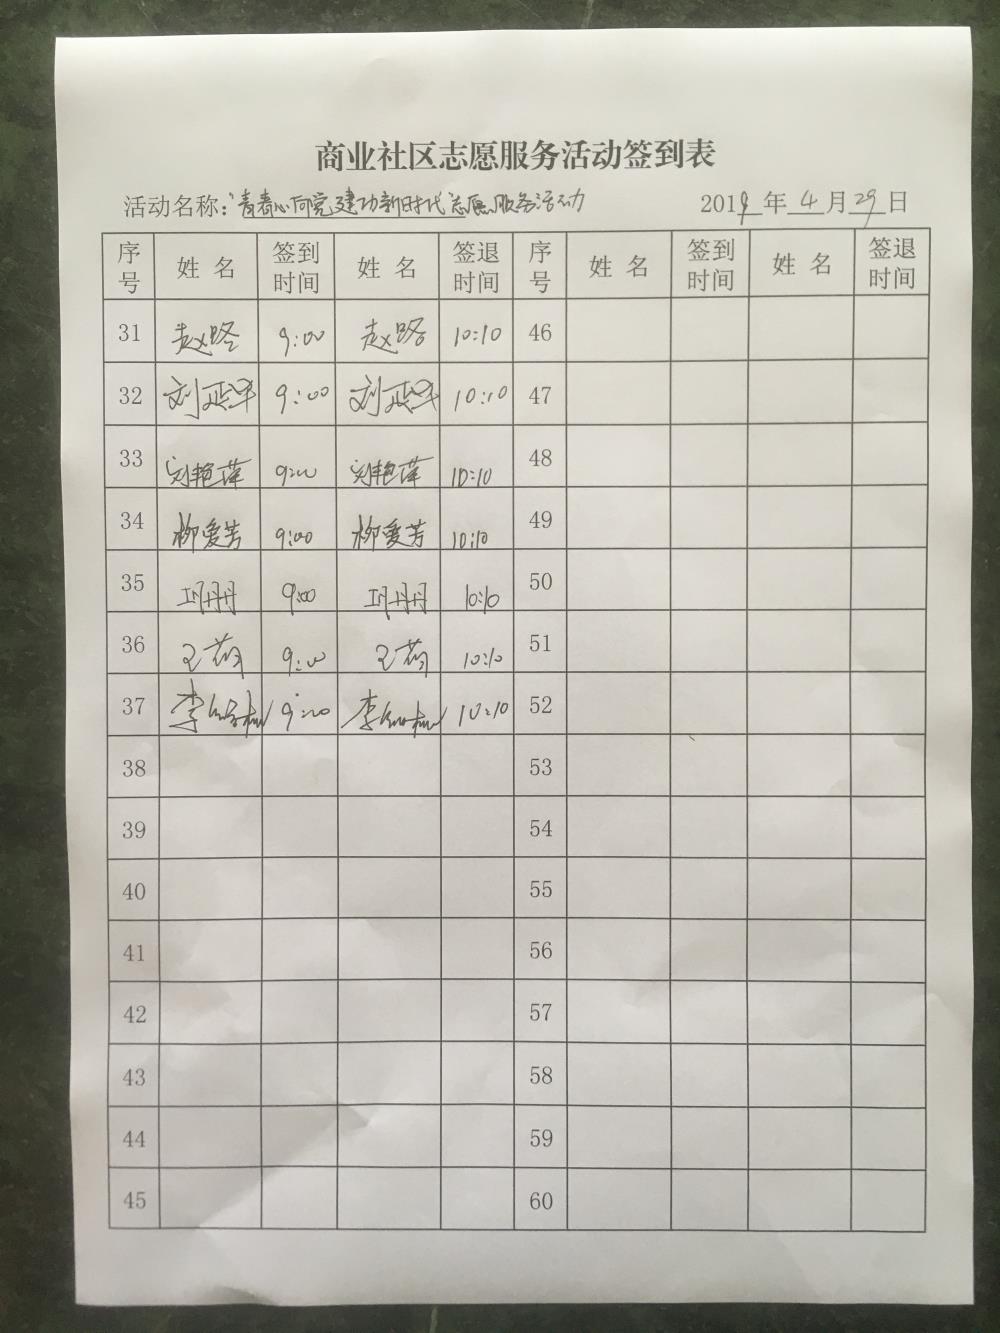 商业社区志愿服务活动签到表
活动名称:“青春心向党 建功新时代”志愿服务活动 2019年4月29日
序号 姓名 签到时间 姓名 签退时间 序号 姓名 签到时间 姓名 签退时间
31 赵路 9:00 赵路 10:10 46
32 刘 9:00 刘 10:10 47
33 刘艳萍 9:00 刘艳萍 10:10 48
34 柳爱芳 9:00 柳爱芳 10:10 49
35 丹丹 9:00 丹丹 10:10 50
36 王 9:00 王 10:10 51
37 李 9:00 李 10:10 52
38 53
39 54
40 55
41 56
42 57
43 58
44 59
45 60